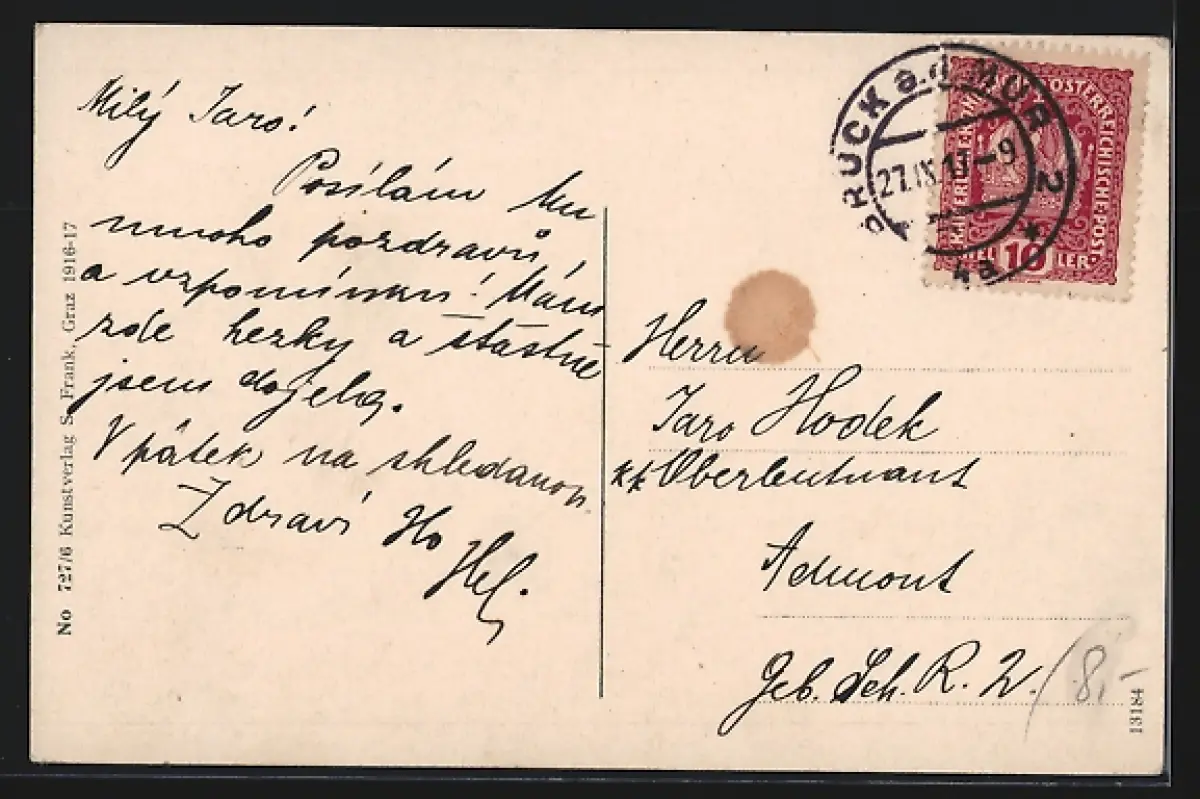 Milý Jaro!
Posílám
mnoho pozdravů,
a vzpomínku! Mám
zde hezky a šťastně
jsem dojela.
V pátek na shledanou
Zdraví
Hel.
No 727/6 Kunstverlag S. Frank, Graz 1916-17
BRUCK a.d. MUR 2
27.IX.17-9
4a
KAISERLICHE KÖNIGLICHE ÖSTERREICHISCHE·POST·
HELLER
10
Herrn
Jaro Hodek
k.k. Oberleutnant
Admont
Geb. Sch. R. 2.
8,-
13184